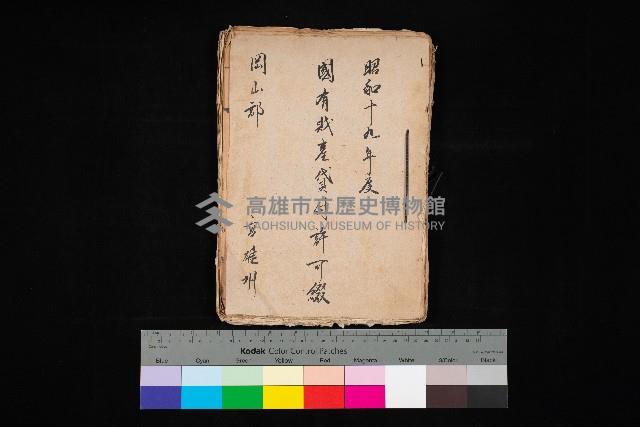 昭和十九年度
國有財產貸付許可綴
岡山郡
高雄州
高雄市立歷史博物館
KAOHSIUNG MUSEUM OF HISTORY
Kodak Color Control Patches
Blue Cyan Green Yellow Red Magenta White 3/Color Black